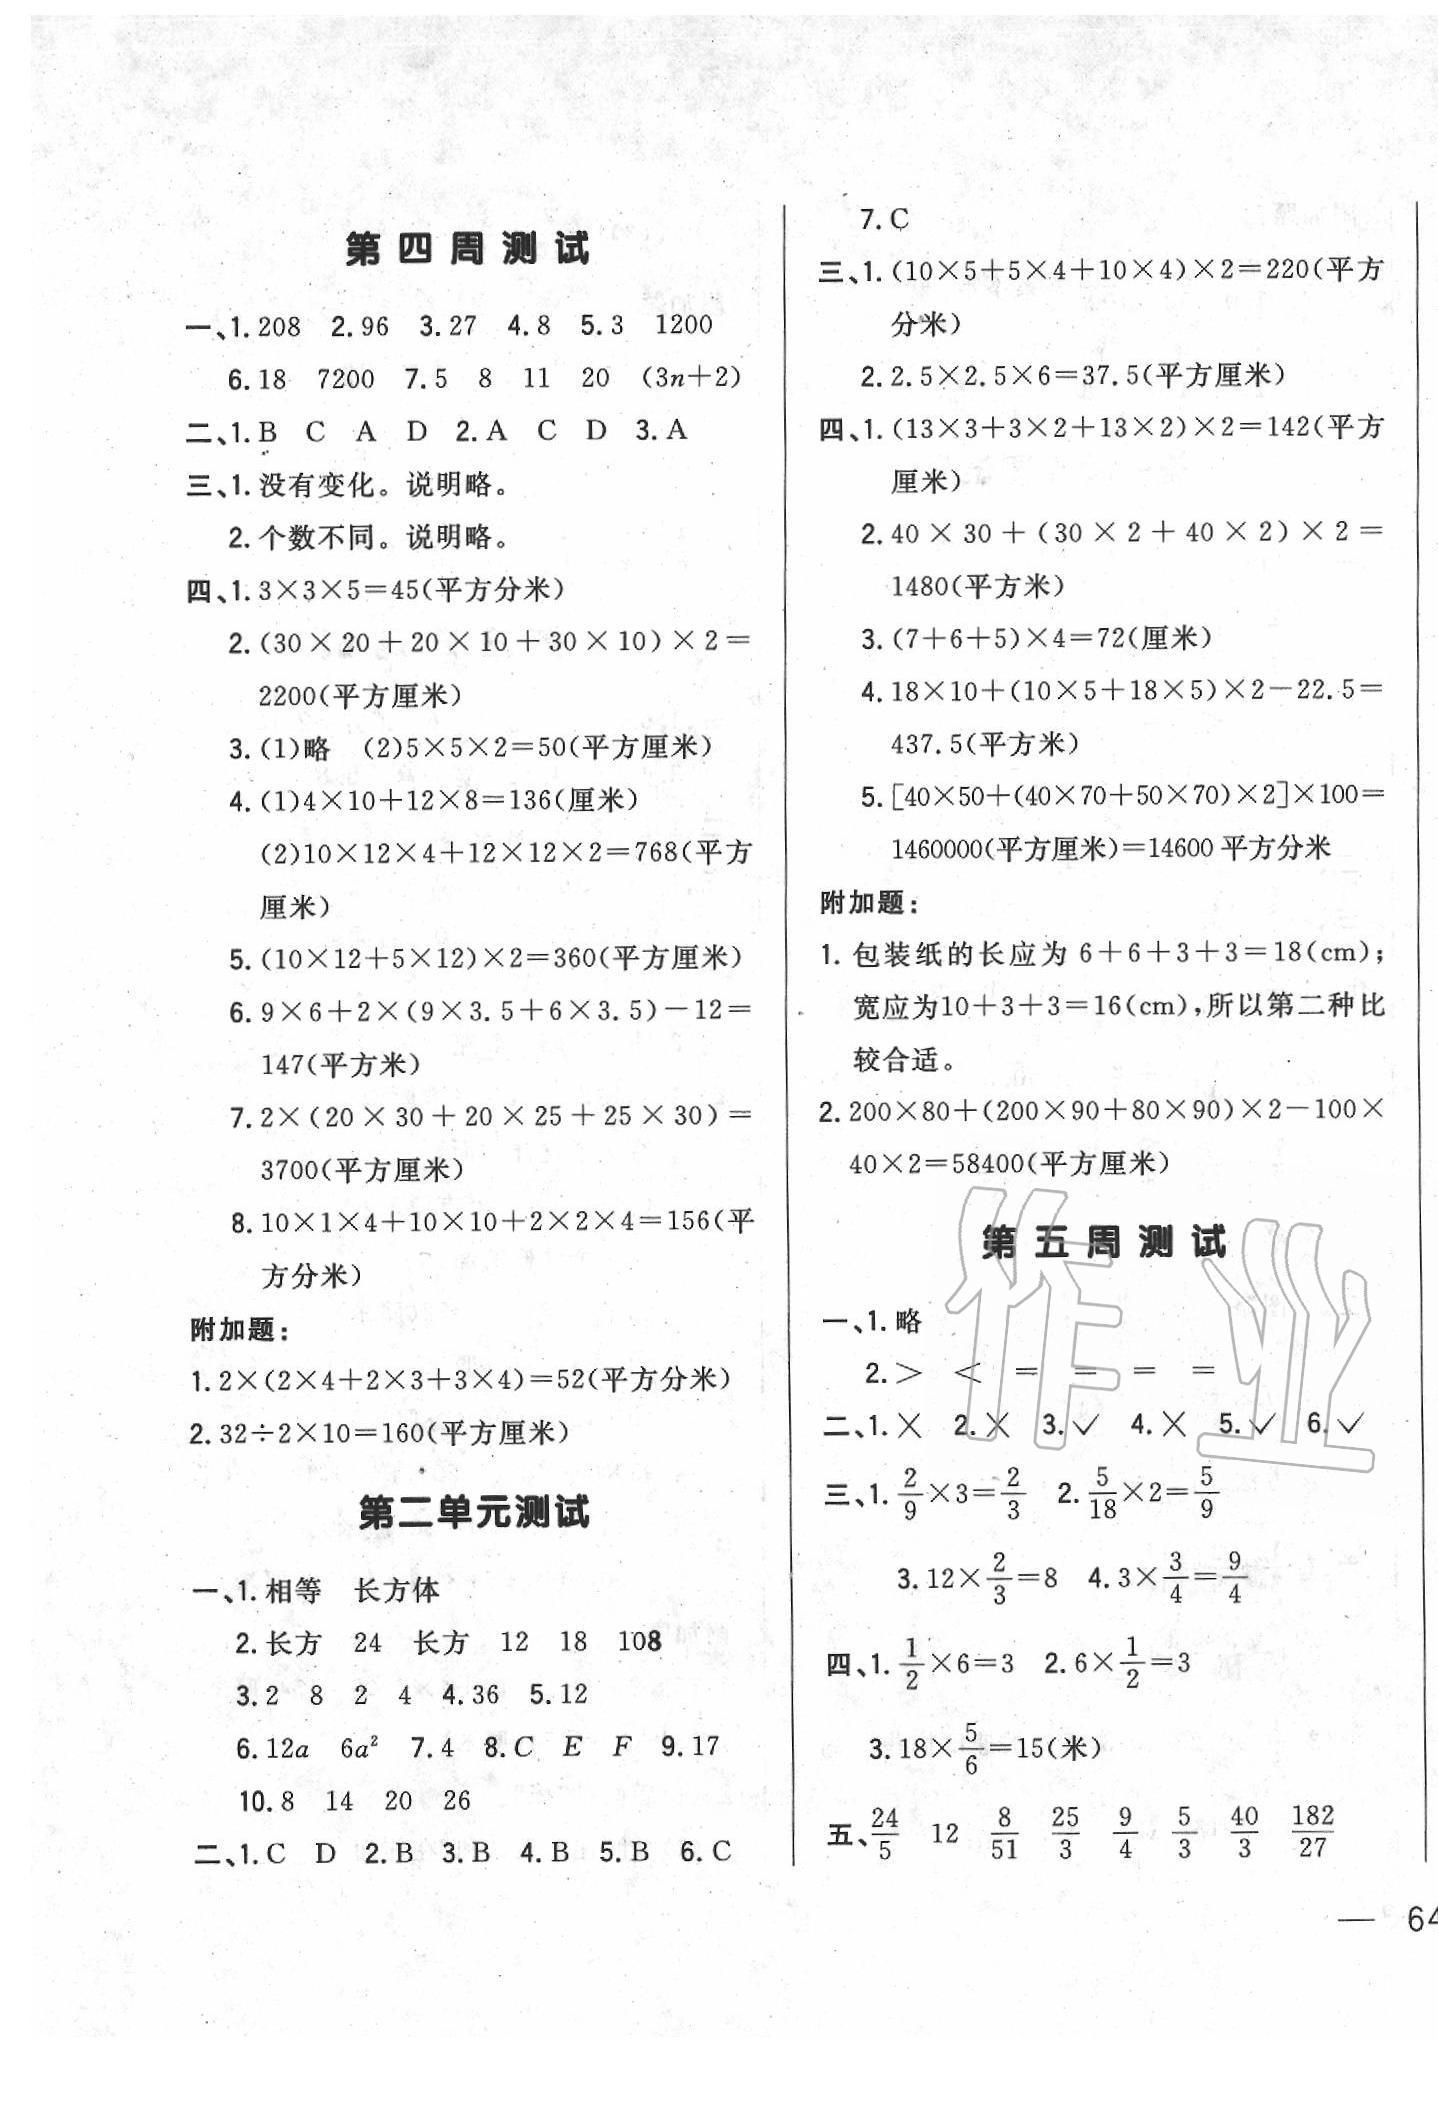 第四周测试
一、1. 208 2. 96 3. 27 4. 8 5. 3 1200
6. 18 7200 7. 5 8 11 20 (3n+2)
二、1. B C A D 2. A C D 3. A
三、1. 没有变化。说明略。
2. 个数不同。说明略。
四、1. 3×3×5=45(平方分米)
2. (30×20+20×10+30×10)×2=
2200(平方厘米)
3. (1)略 (2)5×5×2=50(平方厘米)
4. (1)4×10+12×8=136(厘米)
(2)10×12×4+12×12×2=768(平方
厘米)
5. (10×12+5×12)×2=360(平方厘米)
6. 9×6+2×(9×3.5+6×3.5)-12=
147(平方米)
7. 2×(20×30+20×25+25×30)=
3700(平方厘米)
8. 10×1×4+10×10+2×2×4=156(平
方分米)
附加题:
1. 2×(2×4+2×3+3×4)=52(平方分米)
2. 32÷2×10=160(平方厘米)
第二单元测试
一、1. 相等 长方体
2. 长方 24 长方 12 18 108
3. 2 8 2 4 4. 36 5. 12
6. 12a 6a² 7. 4 8. C E F 9. 17
10. 8 14 20 26
二、1. C D 2. B 3. B 4. B 5. B 6. C
7. C
三、1. (10×5+5×4+10×4)×2=220(平方
分米)
2. 2.5×2.5×6=37.5(平方厘米)
四、1. (13×3+3×2+13×2)×2=142(平方
厘米)
2. 40×30+(30×2+40×2)×2=
1480(平方米)
3. (7+6+5)×4=72(厘米)
4. 18×10+(10×5+18×5)×2-22.5=
437.5(平方米)
5. [40×50+(40×70+50×70)×2]×100=
1460000(平方厘米)=14600平方分米
附加题:
1. 包装纸的长应为6+6+3+3=18(cm);
宽应为10+3+3=16(cm),所以第二种比
较合适。
2. 200×80+(200×90+80×90)×2-100×
40×2=58400(平方厘米)
第五周测试
一、1. 略
2. > < = = = =
二、1. × 2. × 3. ✓ 4. × 5. ✓ 6. ✓
三、1. 2/9×3=2/3 2. 5/18×2=5/9
3. 12×2/3=8 4. 3×3/4=9/4
四、1. 1/2×6=3 2. 6×1/2=3
3. 18×5/6=15(米)
五、24/5 12 8/51 25/3 9/4 5/3 40/3 182/27
— 64
作业